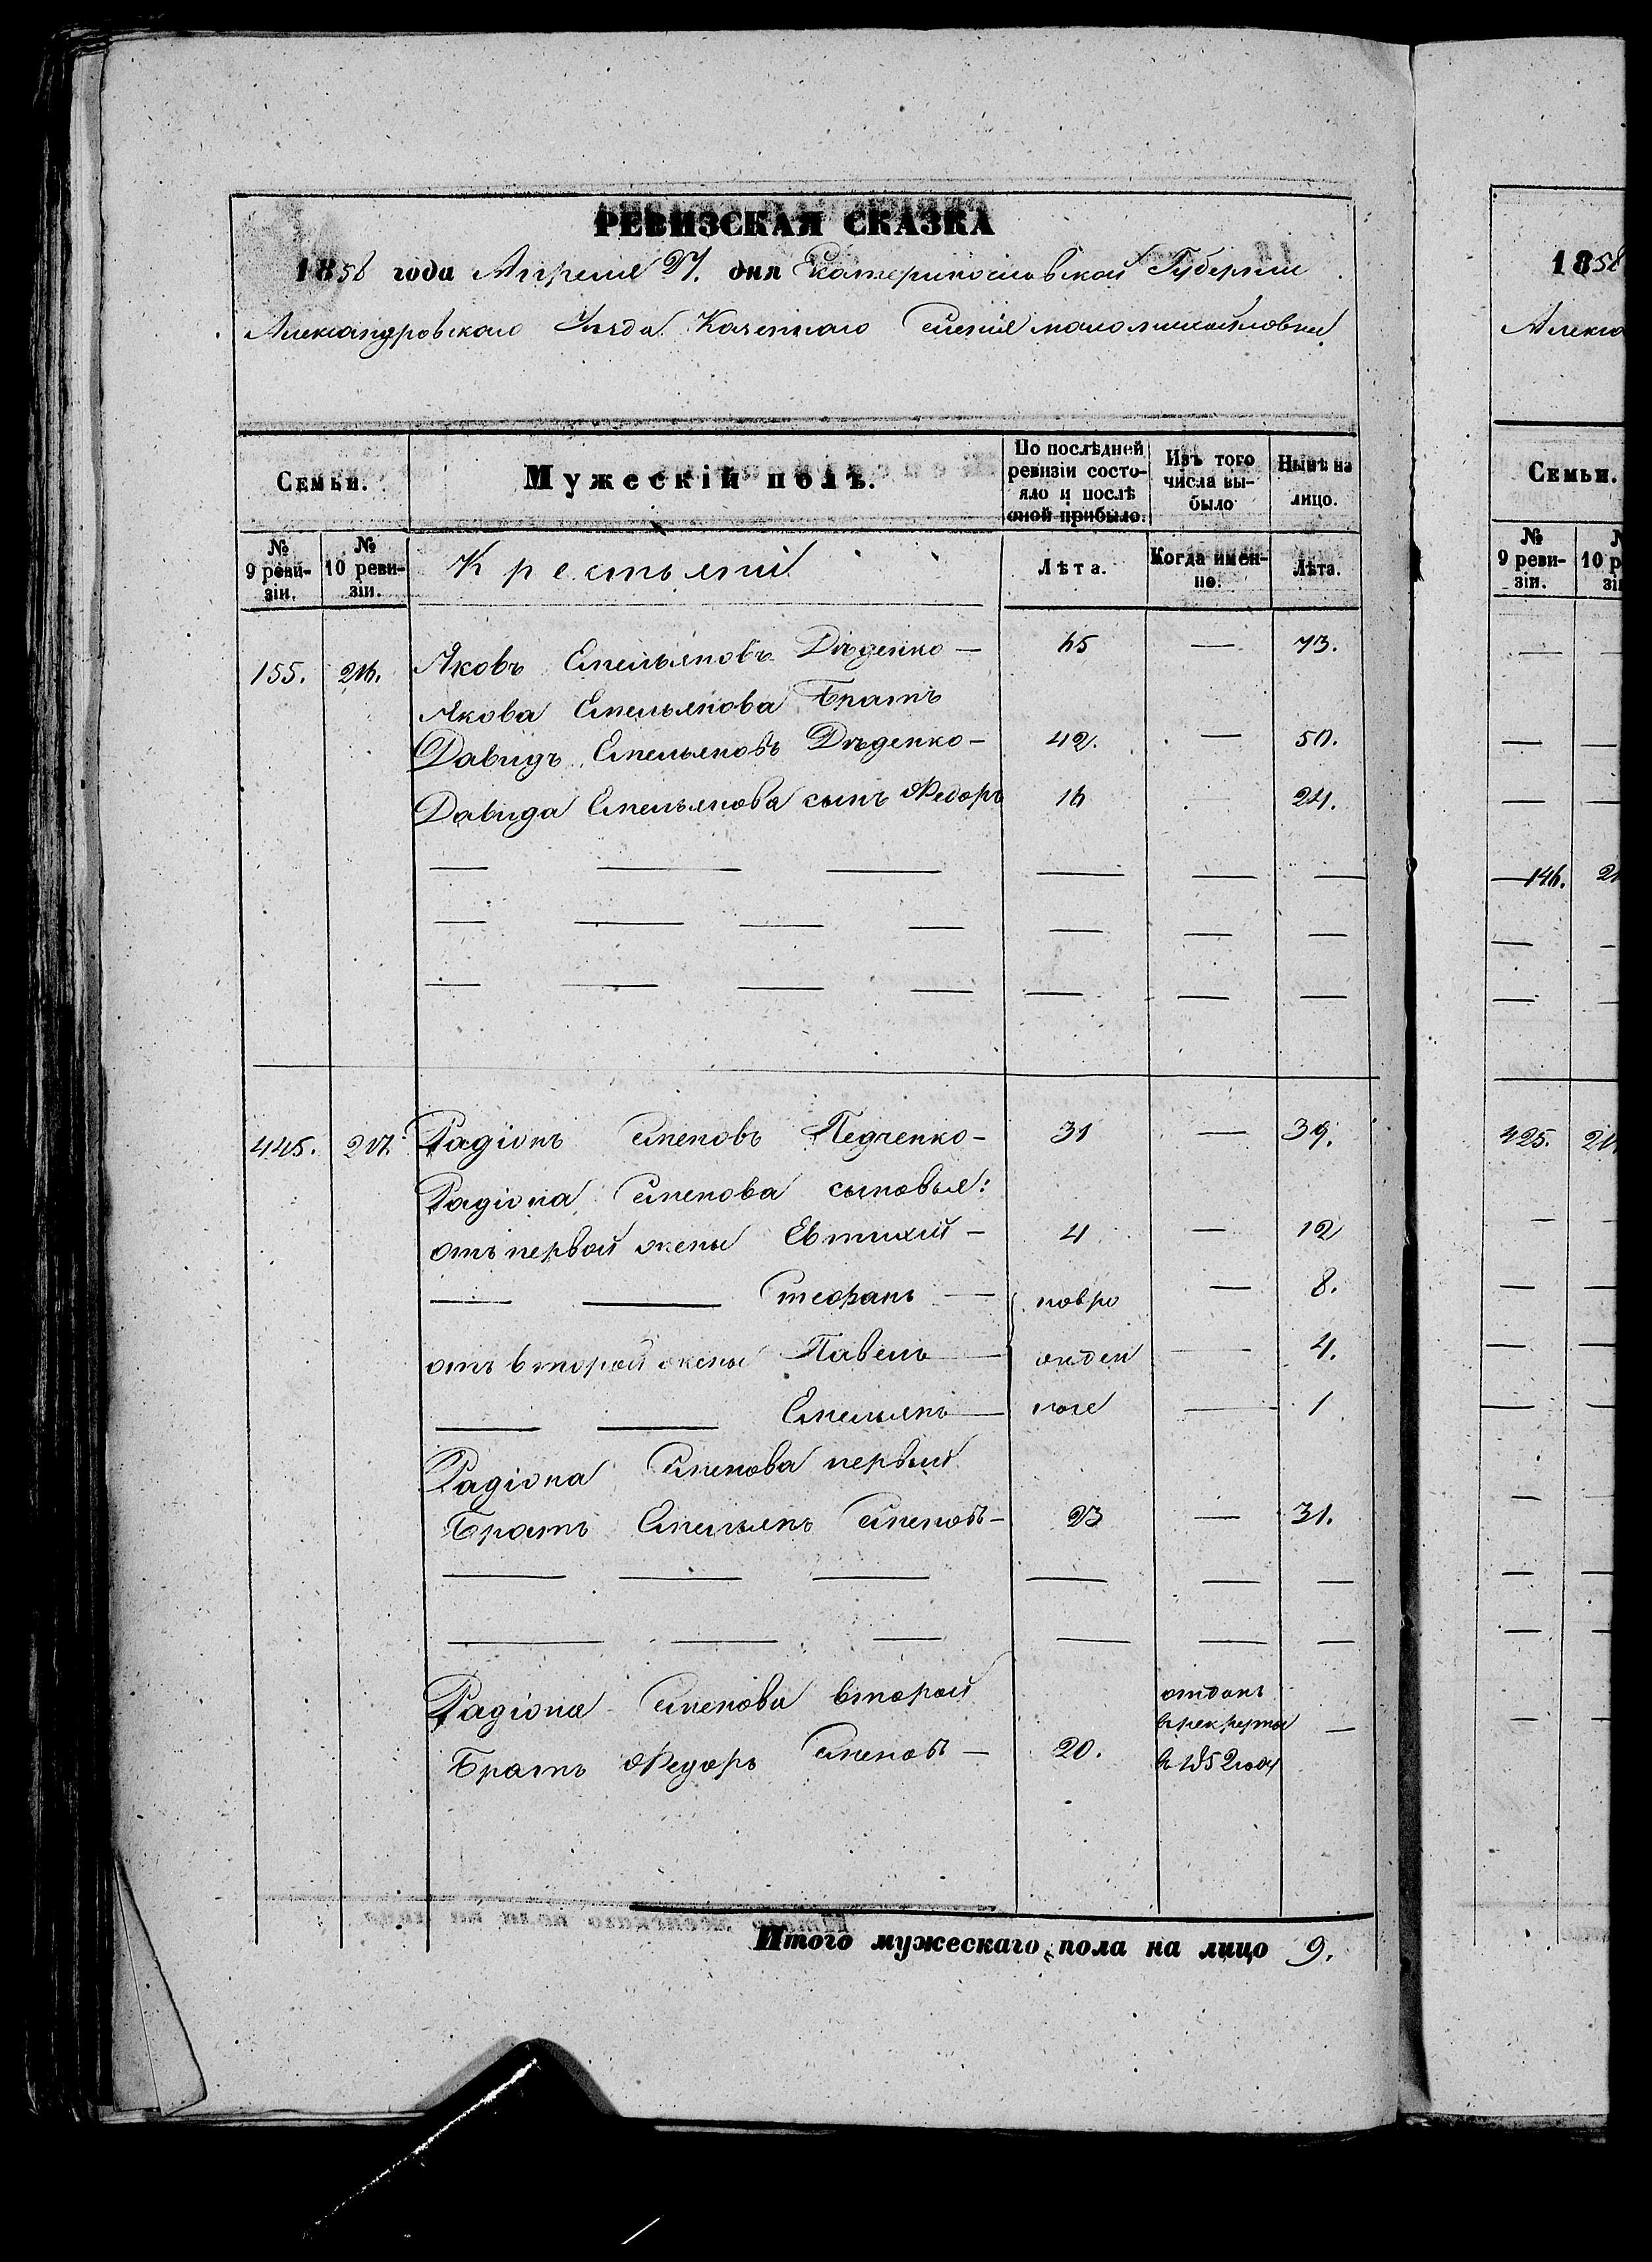 РЕВИЗСКАЯ СКАЗКА
1858 года Апреля 27. дня Екатеринославской Губернии
Александровскаго Уезда Казеннаго Селения маломихайловки
Семьи.
Мужескій полъ.
По послѣдней ревизіи состо-
яло и послѣ оной прибыло.
Изъ того числа вы-
было
Нынѣ на лицо.
№ 9 реви-
зіи.
№ 10 реви-
зіи.
Крестьяни
Лѣта.
Когда имен-
но.
Лѣта.
155. 216. Яковъ Емельяновъ Дѣденко — 65 — 73.
Якова Емельянова Братъ
Давидъ Емельяновъ Дѣденко — 42. — 50.
Давида Емельянова сынъ Федоръ 16 24.
445. 217. Радіонъ Семеновъ Педченко — 31 — 39.
Радіона Семенова сыновья:
отъ первой жены Евтихий — 4 — 12
— — Стефанъ — новоро — 8.
отъ второй жены Павелъ — жден — 4.
— — Емельянъ — ные — 1
Радіона Семенова первый
Братъ Емельянъ Семеновъ — 23 — 31.
Радіона Семенова второй
Братъ Федоръ Семеновъ — 20. отданъ в рекруты в 1852 году —
Итого мужескаго пола на лицо 9.
1858
Алекса
Семьи.
№ 9 реви-
зіи.
146.
425.